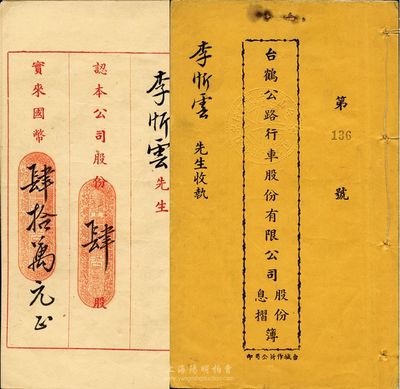 第
136
號
台鶴公路行車股份有限公司
股份
息摺
簿
李忻雲
先生收執
台城作新公司印
李忻雲
先生
認本公司股份
肆
股
實來國幣
肆拾萬元正
上海陽明拍賣